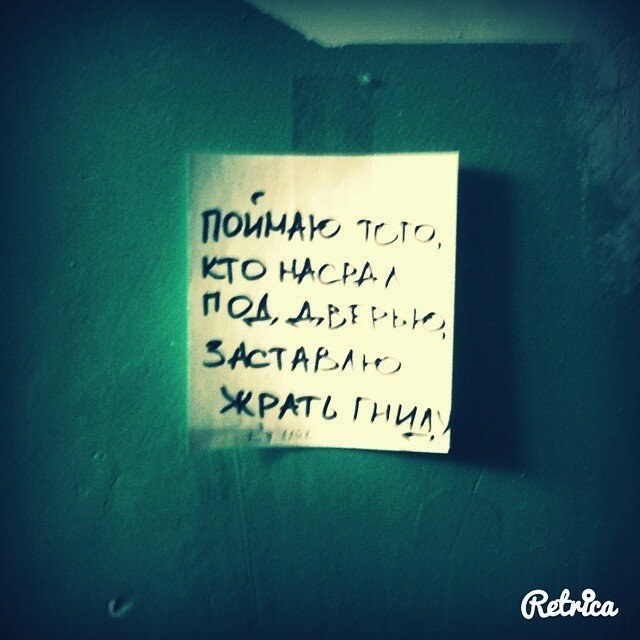 ПОЙМАЮ ТОГО,
КТО НАСРАЛ
ПОД, ДВЕРЬЮ,
ЗАСТАВЛЮ
ЖРАТЬ ГНИДУ
Retrica